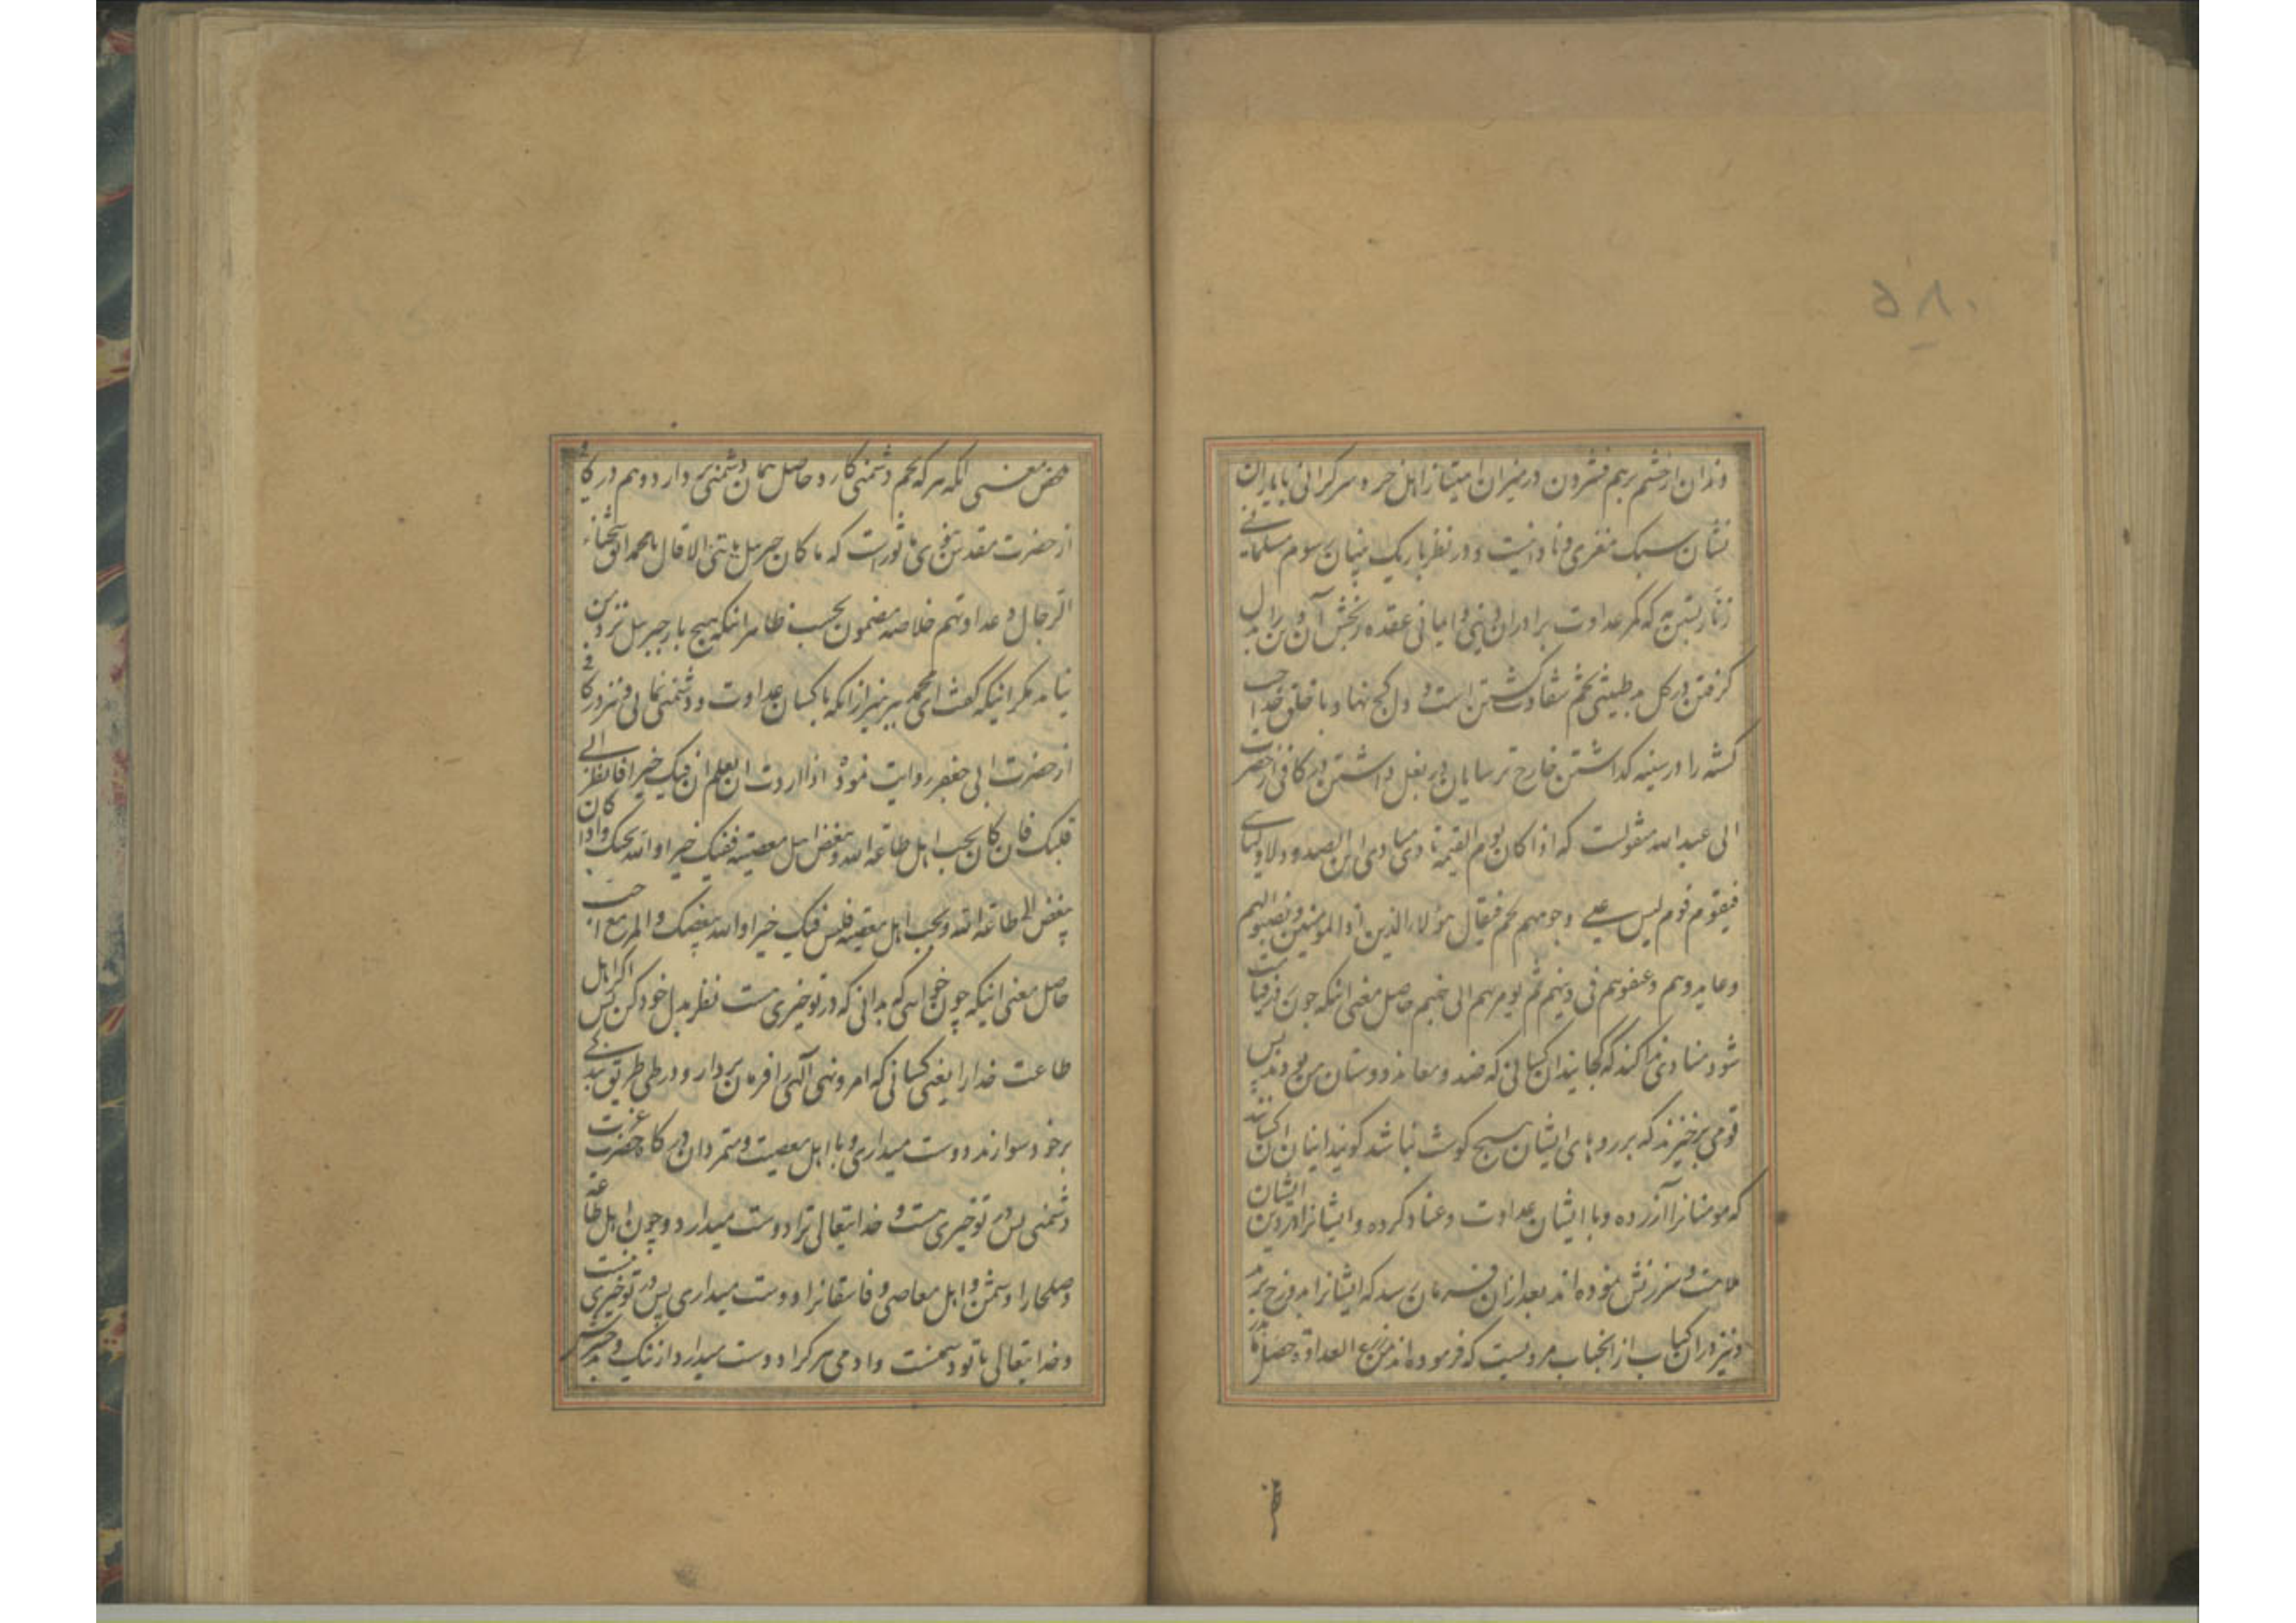 ۵۸۰
دندان از خشم برهم فشردن در میزان امتیاز از اهل خرد سرگرانی با یاران
نشان سبک مغزی و نادانیست و در نظر باریک بینان رسوم مسلمانی
زنار بستن به که کمر عداوت برادران دینی و ایمانی عقده رنجش آن و این را بدل
گرفتن در گل بد طینتی تخم شقاوت کشتن است و دل کج نهاد با خلق خدا
کشه را در سینه گذاشتن خارج ترسایان در بغل داشتن در کافی از حضرت
ابی عبد الله منقولست که اذا کان یوم القیمة نادی منادی این الصدود لاولیائی
فیقوم قوم لیس علی وجوههم لحم فیقال هؤلاء الذین آذوا المومنین و نصبوا لهم
و عاندوهم و عنفوهم فی دینهم ثم یومر بهم الی جهنم حاصل معنی اینکه چون روز قیامت
شود منادی ندا کند که کجایند آن کسانی که ضد و معاند دوستان من بودند پس
قومی برخیزند که بر روهای ایشان هیچ گوشت نباشد گویند اینان آن کسانند
که مومنانرا آزرده و با ایشان عداوت و عناد کرده و ایشانرا در دین ایشان
ملامت و سرزنش نموده اند بعد از آن فرمان رسد که ایشانرا بدوزخ برند
و نیز در آن کتاب از آنجناب مرویست که فرموده اند من زرع العداوة حصد ما بذر
محض معنی آنکه هر که تخم دشمنی کارد حاصل همان دشمنی بردارد و هم در کافی
از حضرت مقدس نبوی ماثورست که ما کان جبرئیل یاتینی الا قال یا محمد اتق شحناء
الرجال و عداوتهم خلاصه مضمون بحسب ظاهر اینکه هیچ بار جبرئیل نزد من
نیامد مگر اینکه گفت ای محمد بپرهیز از آنکه با کسان عداوت و دشمنی نمایی و نیز در کافی
از حضرت ابی جعفر روایت نموده اذا اردت ان تعلم ان فیک خیرا فانظر الی
قلبک فان کان یحب اهل طاعة الله و یبغض اهل معصیته ففیک خیرا و الله یحبک و اذا کان
یبغض اهل طاعة الله و یحب اهل معصیته فلیس فیک خیرا و الله یبغضک و المرء مع من احب
حاصل معنی اینکه چون خواهی که بدانی که در تو خیری هست نظر بدل خود کن پس اگر اهل
طاعت خدا را یعنی کسانی که امر و نهی الهی را فرمان بردار و در طی طریق بندگی
بر خود سوارند دوست میداری و با اهل معصیت و متمردان درگاه حضرت عزت
دشمنی پس در تو خیری هست و خدایتعالی ترا دوست میدارد و چون اهل طاعة
و صلحا را دشمن و اهل معاصی و فاسقانرا دوست میداری پس در تو خیری نیست
و خدایتعالی با تو دشمنست و آدمی هر کرا دوست میدارد از نیک و بد